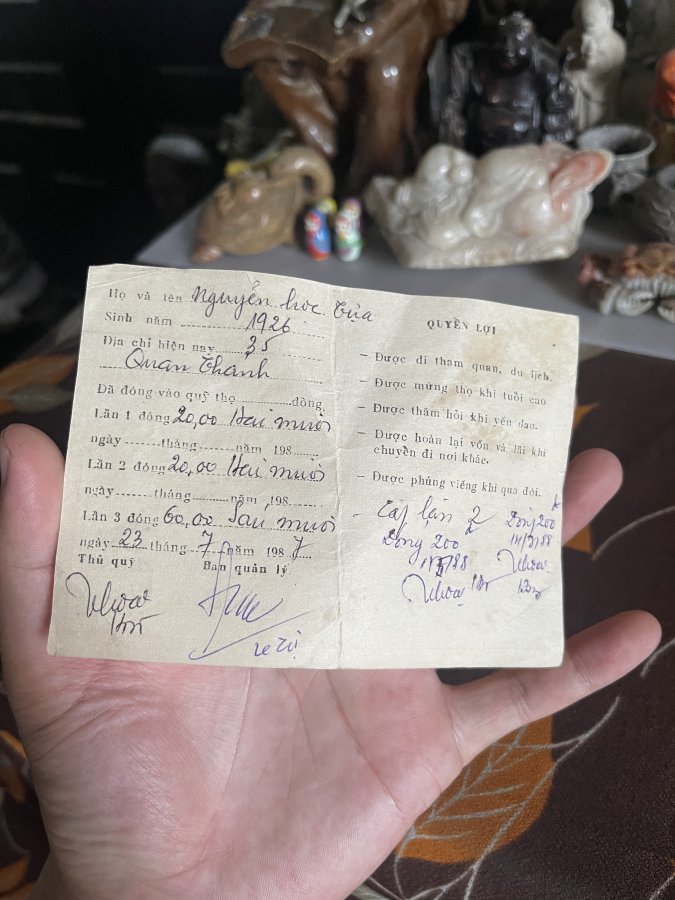 Họ và tên Nguyễn học Tựa
Sinh năm 1926
Địa chỉ hiện nay 35
Quan Thánh
Đã đóng vào quỹ thọ đồng
Lần 1 đóng 20,00 Hai mươi
ngày tháng năm 198
Lần 2 đóng 20,00 Hai mươi
ngày tháng năm 198
Lần 3 đóng 60,00 Sáu mươi
ngày 23 tháng 7 năm 198 7
Thủ quỹ Ban quản lý
QUYỀN LỢI
— Được đi tham quan, du lịch.
— Được mừng thọ khi tuổi cao
— Được thăm hỏi khi yếu đau.
— Được hoàn lại vốn và lãi khi
chuyển đi nơi khác.
— Được phúng viếng khi qua đời.
lần 2
Đóng 200
Đóng 200